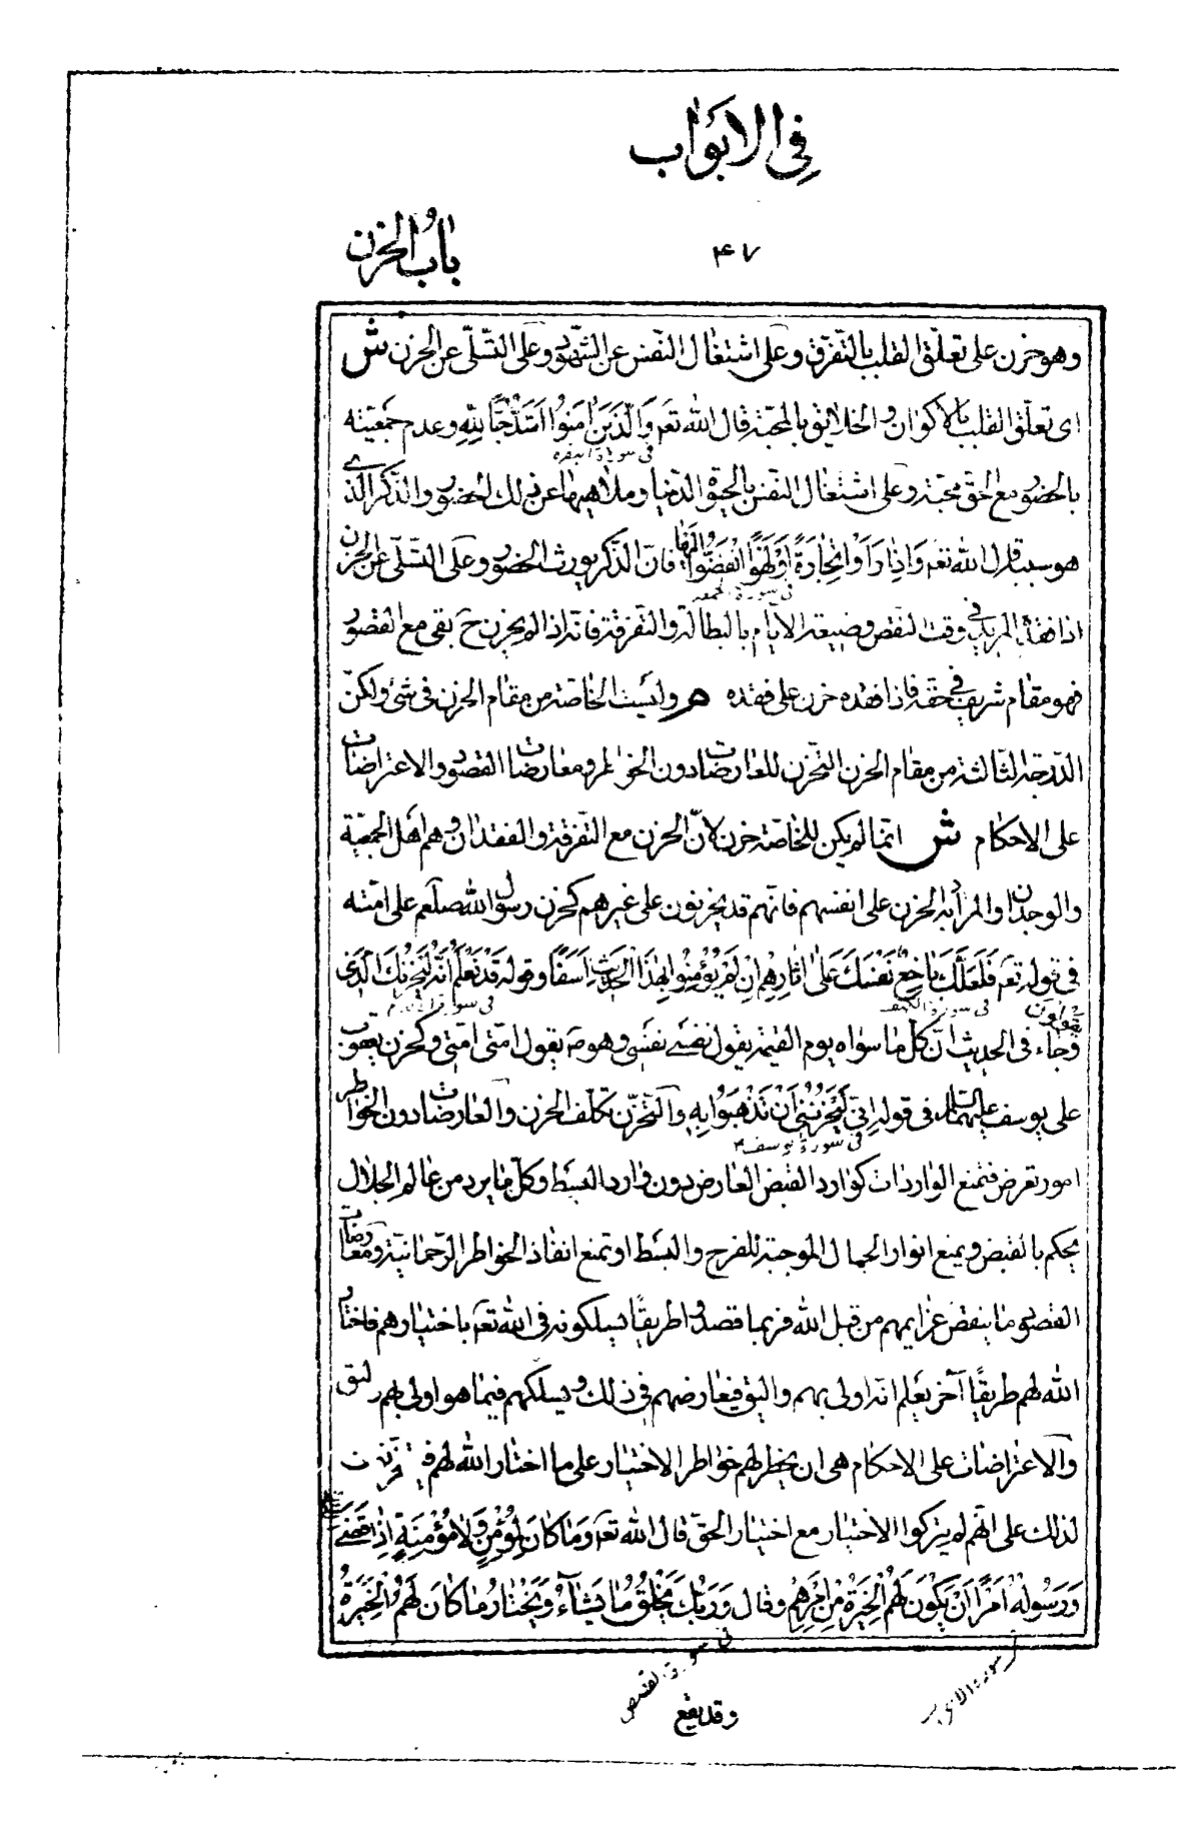 في الابواب
باب الحزن
۴۷
وهو حزن على تعلّق القلب بالتفرق وعلى اشتغال النفس عن الشهود وعلى التسلّى عن الحزن ش
اى تعلّق القلب بالاكوان والخلايق بالمحبّة قال الله تعم وَالَّذينَ اٰمَنُوا اَشَدُّ حُبًّا لِلّٰهِ وعدم جمعيّته
فى سورة البقره
بالحضور مع الحق محبّة وعلى اشتغال النفس بالحيٰوة الدنيا وملاهيها عن ذلك الحضور والذكر الذى
هو سببه قال الله تعم وَاِذٰا رَاَوْا تِجٰارَةً اَوْ لَهْوًا انْفَضُّوا اِلَيْهٰا فانّ الذكر يورث الحضور وعلى التسلّى عن الحزن
فى سورة الجمعه
اذا فقده المريد فى وقت النقص وضيعة الايام بالبطالة والتفرقة فانه اذا لم يحزن ح بقى مع القصور
فهو مقام شريف فى حقّه فاذا فقده حزن على فقده هر وليست الخاصّة من مقام الحزن فى شئ ولكنّ
الدّرجة الثالثة من مقام الحزن التحزّن للعارضات دون الخواطر ومعارضات القصود والاعتراضات
على الاحكام ش انّما لم يكن للخاصّة حزن لانّ الحزن مع التفرقة والفقدان وهم اهل الجمعيّة
والوجدان والمراد به الحزن على انفسهم فانّهم قد يحزنون على غيرهم كحزن رسول الله صلّعم على امّته
فى قوله تعم فَلَعَلَّكَ بٰاخِعٌ نَفْسَكَ عَلٰى اٰثٰارِهِمْ اِنْ لَمْ يُؤْمِنُوا بِهٰذَا الْحَديثِ اَسَفًا وقوله قَدْ نَعْلَمُ اِنَّهُ لَيَحْزُنُكَ الَّذى
يقولون
فى سورة الكهف
فى سورة الانعام
وجاء فى الحديث انّ كلّ ما سواه يوم القيمة يقول نفسى نفسى وهو صه يقول امّتى امّتى وكحزن يعقوب
على يوسف عليهما السلام فى قوله اِنّى لَيَحْزُنُنى اَنْ تَذْهَبُوا بِهِ والتحزّن تكلّف الحزن والعارضات دون الخواطر
فى سورة يوسف
امور تعرض فتمنع الواردات كوارد القبض العارض دون وارد البسط وكلّ ما يرد من عالم الجلال
يحكم بالقبض ويمنع انوار الجمال الموجبة للفرح والبسط او تمنع انفاذ الخواطر الرّحمانيّة ومعارضات
القصود ما ينقض عزايمهم من قبل الله فربما قصدوا طريقًا يسلكونه فى الله تعم باختيارهم فاختار
الله لهم طريقًا آخر يعلم انّه اولى بهم واليق فيعارضهم فى ذلك ويسلكهم فيما هو اولى بهم واليق
والاعتراضات على الاحكام هى ان يخطر لهم خواطر الاختيار على ما اختار الله لهم فيحزنون
لذلك على انّهم لم يتركوا الاختيار مع اختيار الحقّ قال الله تعم وَمٰا كٰانَ لِمُؤْمِنٍ وَلٰا مُؤْمِنَةٍ اِذٰا قَضَى
وَرَسُولُهُ اَمْرًا اَنْ يَكُونَ لَهُمُ الْخِيَرَةُ مِنْ اَمْرِهِمْ وقال وَرَبُّكَ يَخْلُقُ مٰا يَشٰآءُ وَيَخْتٰارُ مٰا كٰانَ لَهُمُ الْخِيَرَةُ
فى سورة القصص
وقد يقع